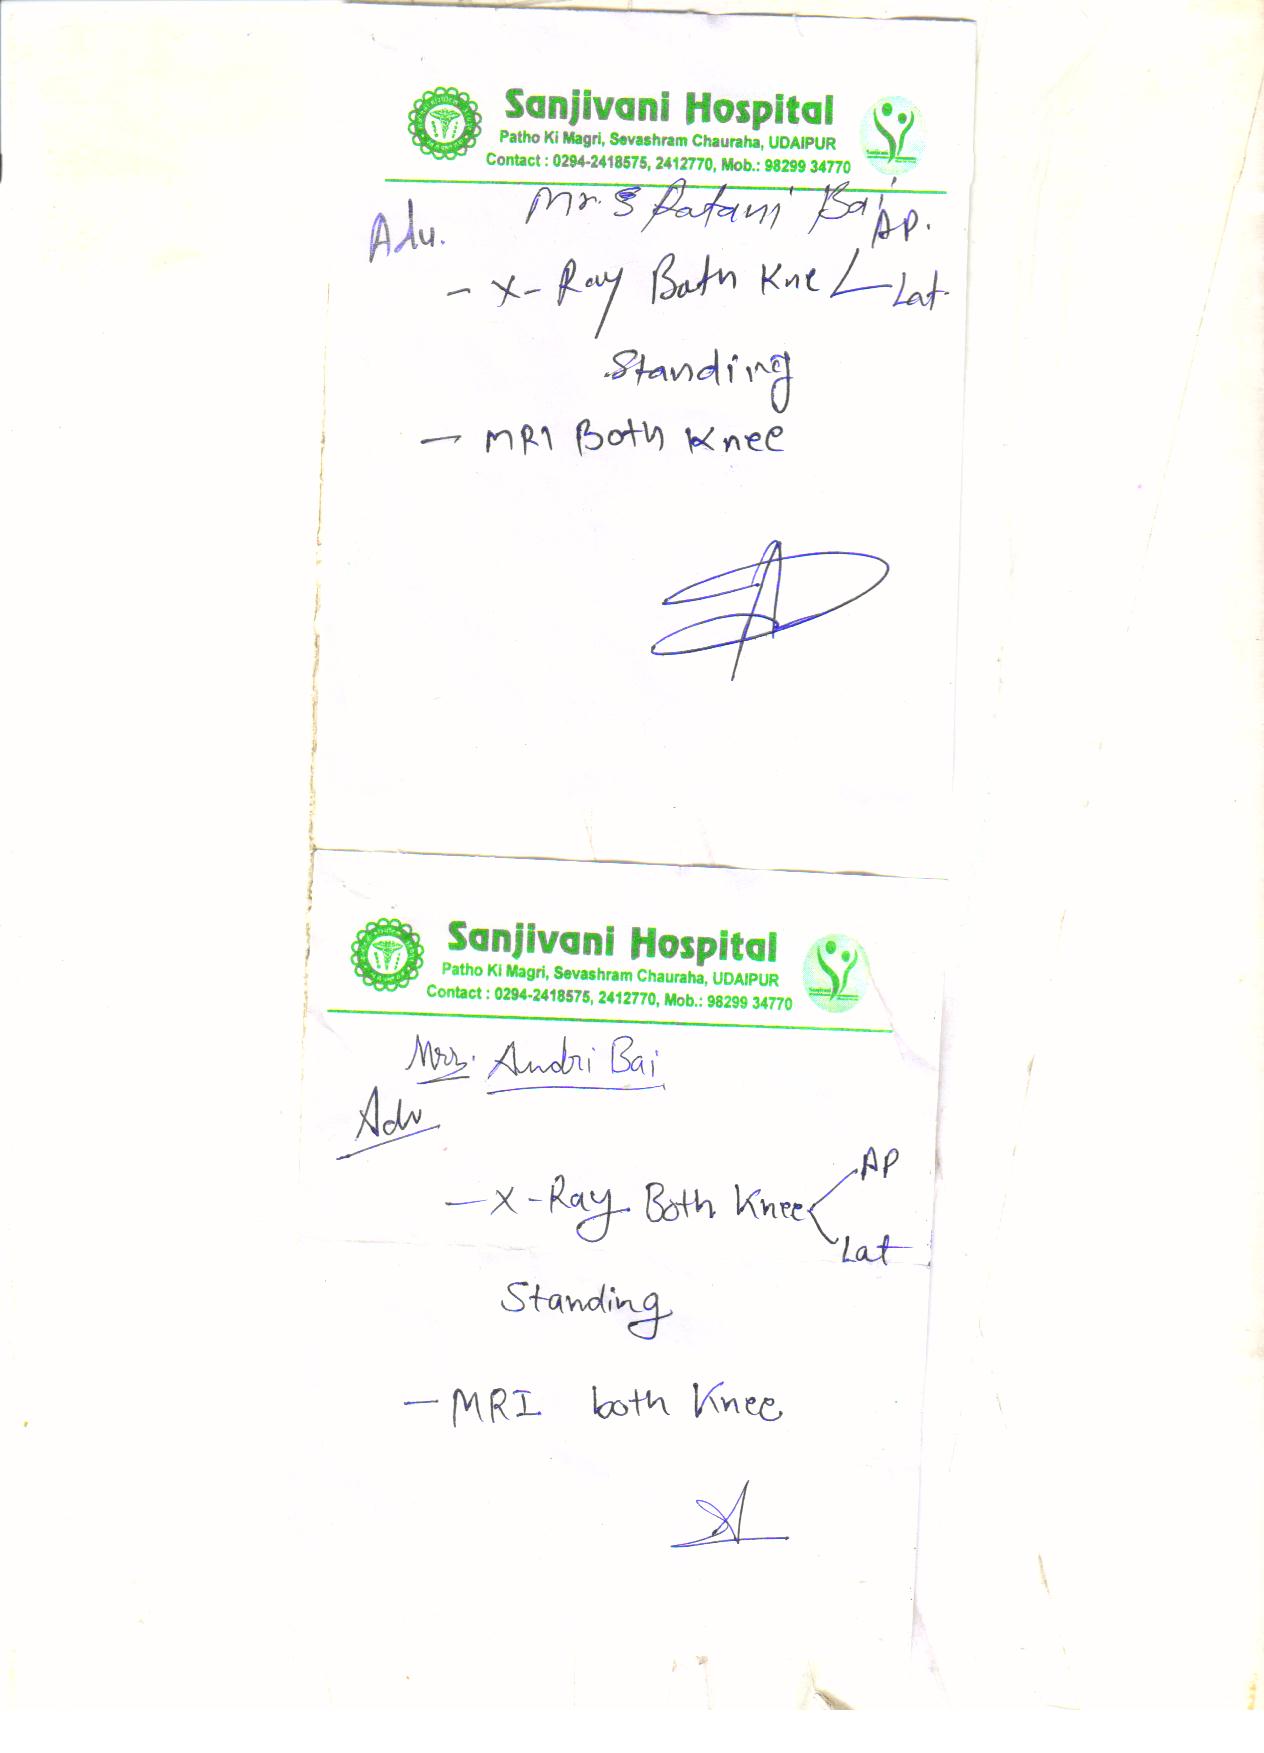 Sanjivani Hospital
Patho Ki Magri, Sevashram Chauraha, UDAIPUR
Contact : 0294-2418575, 2412770, Mob.: 98299 34770
Mr.s Ratani Bai
Adv.
AP.
- X-Ray Both Kne
Lat.
Standing
- MRI Both Knee
Sanjivani Hospital
Patho Ki Magri, Sevashram Chauraha, UDAIPUR
Contact : 0294-2418575, 2412770, Mob.: 98299 34770
Mrs. Andri Bai
Adv
AP
- X-Ray Both Knee
Lat
Standing
- MRI both Knee